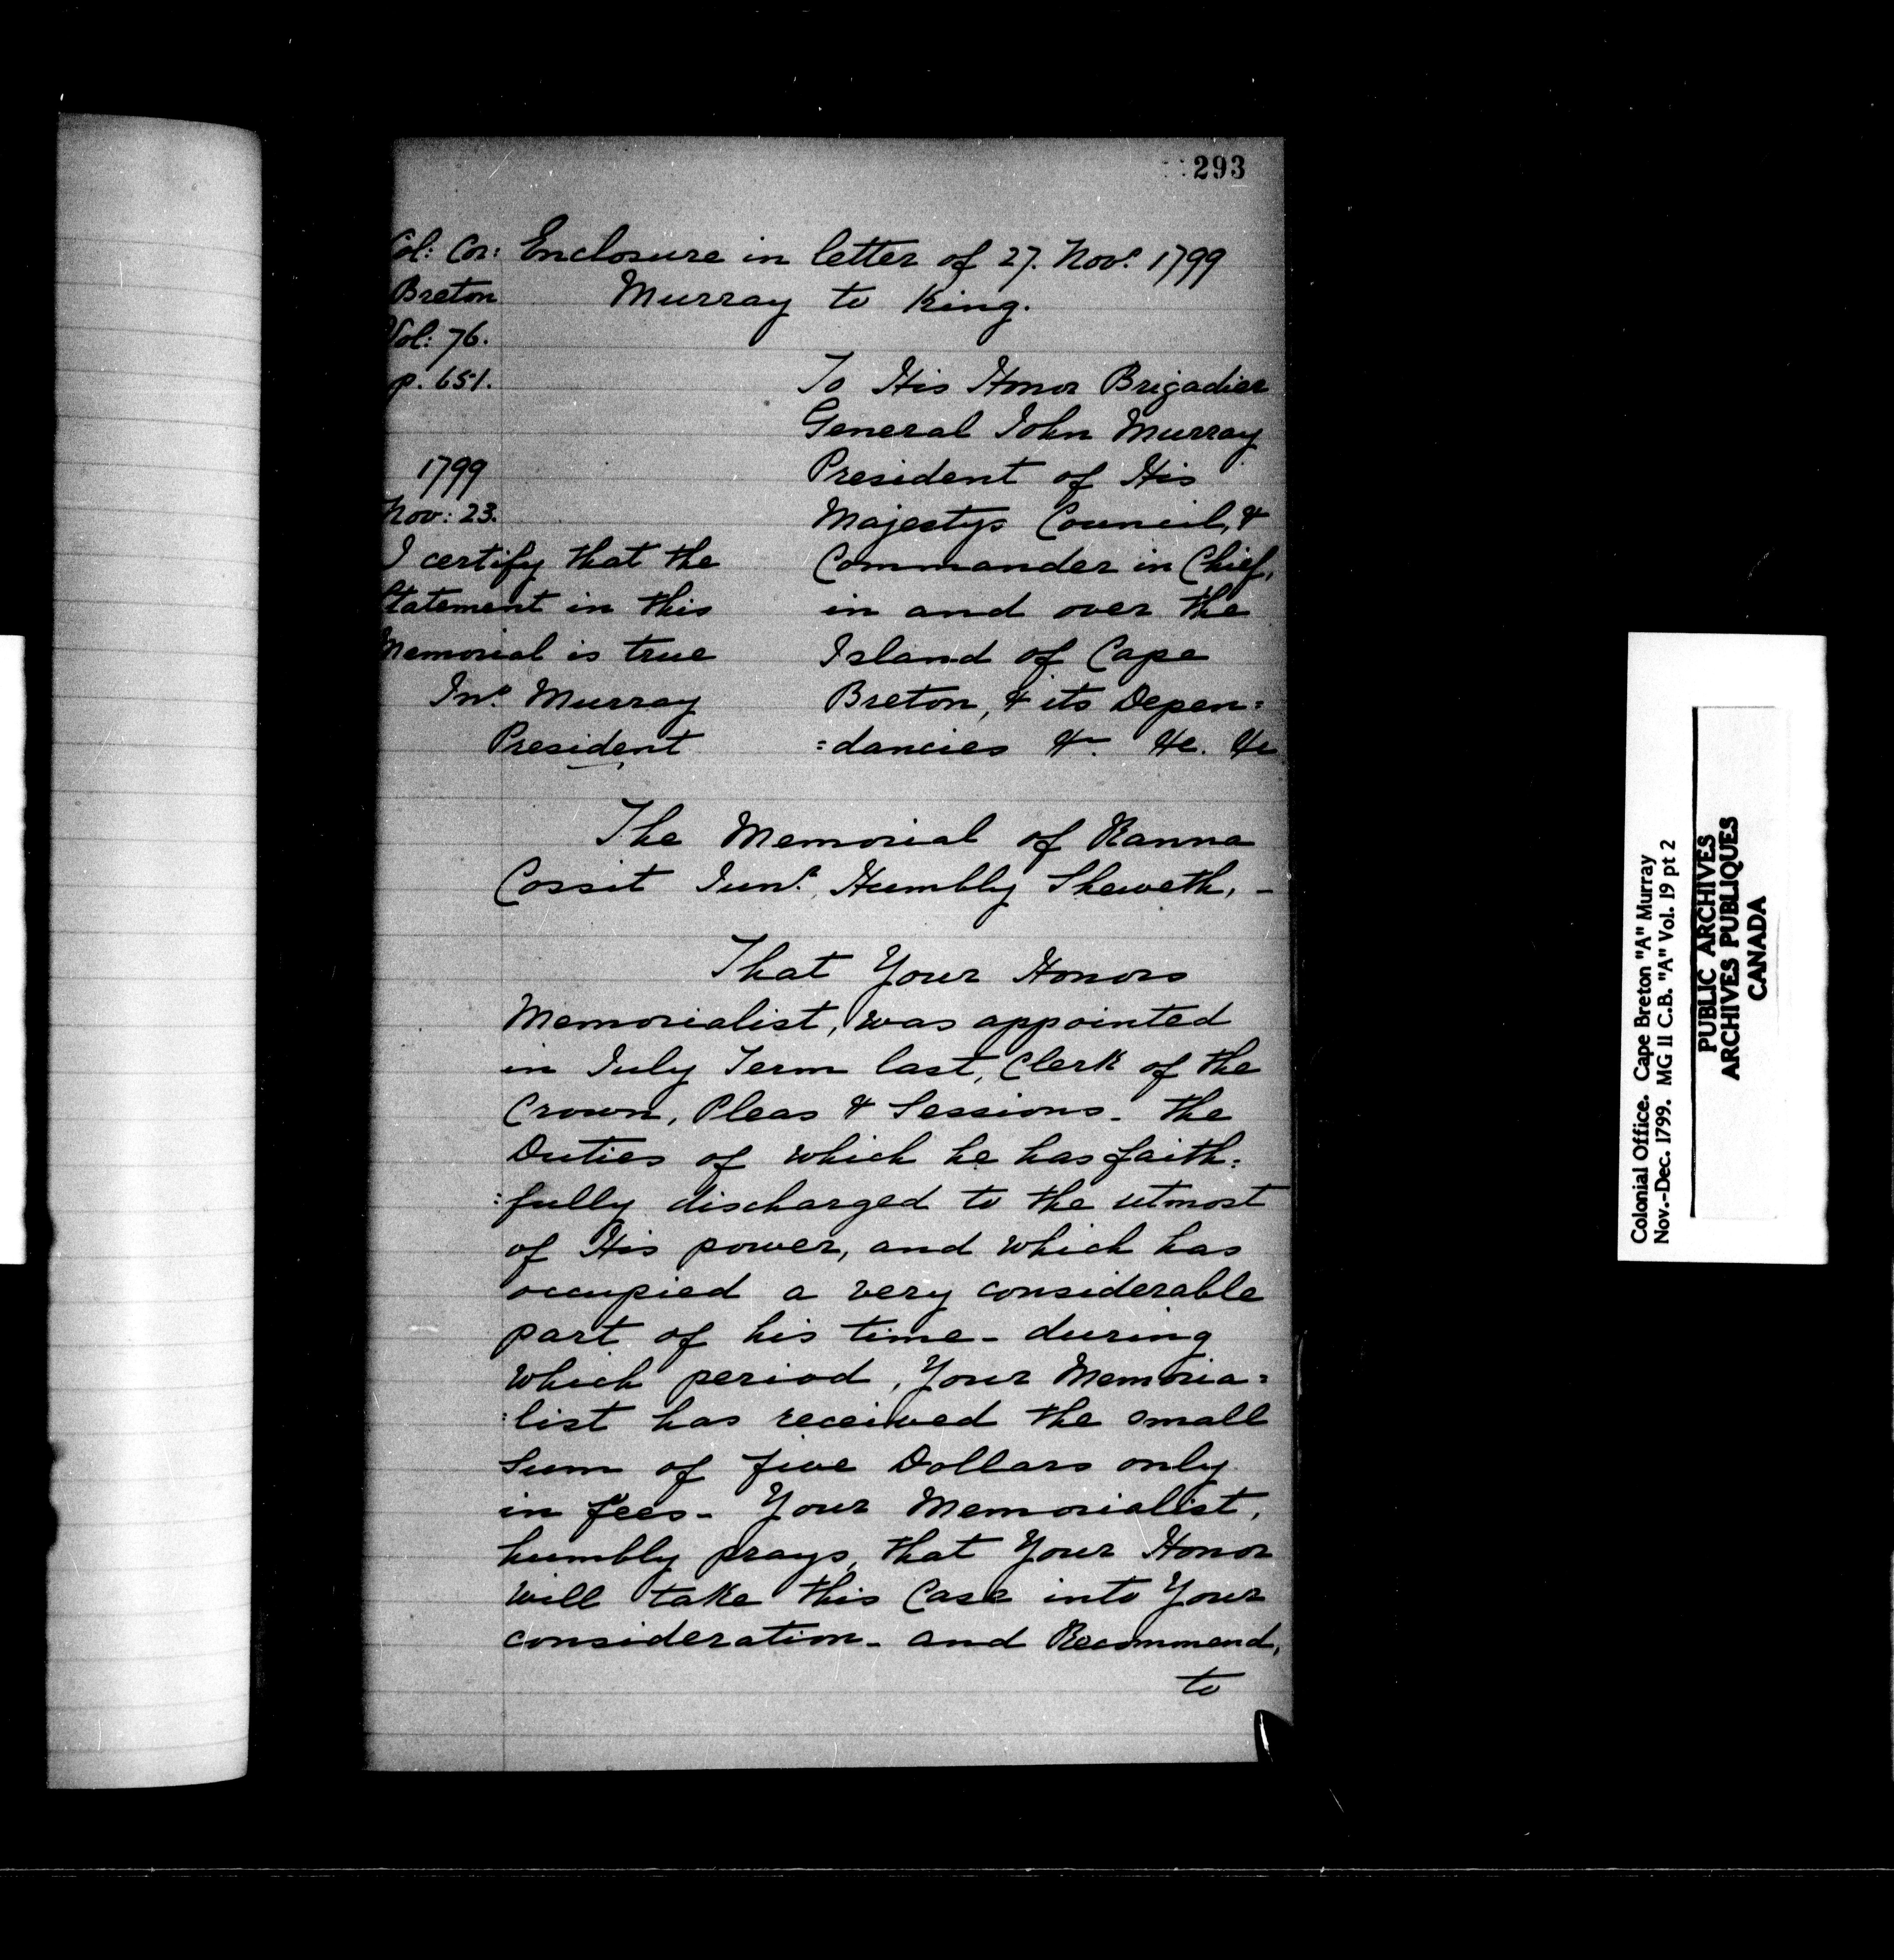 293
Col: Cor:
Breton
Vol: 76.
p. 651.
Enclosure in letter of 27. Novr. 1799
Murray to King.
1799
Nov: 23.
I certify that the
Statement in this
Memorial is true
Jno. Murray
President
To His Honor Brigadier
General John Murray
President of His
Majestys Council, &
Commander in Chief,
in and over the
Island of Cape
Breton, & its Depen=
=dancies &c. &c. &c
The Memorial of Ranna
Cossit Junr. Humbly Sheweth, -
That Your Honors
Memorialist, was appointed
in July Term last, Clerk of the
Crown, Pleas & Sessions - the
Duties of which he has faith=
=fully discharged to the utmost
of His power, and which has
occupied a very considerable
part of his time - during
which period, Your Memoria=
=list has received the small
Sum of five Dollars only
in fees - Your Memorialist,
humbly prays, that Your Honor
will take this Case into Your
consideration - and Recommend,
to
Colonial Office. Cape Breton "A" Murray
Nov.-Dec. 1799. MG 11 C.B. "A" Vol. 19 pt 2
PUBLIC ARCHIVES
ARCHIVES PUBLIQUES
CANADA